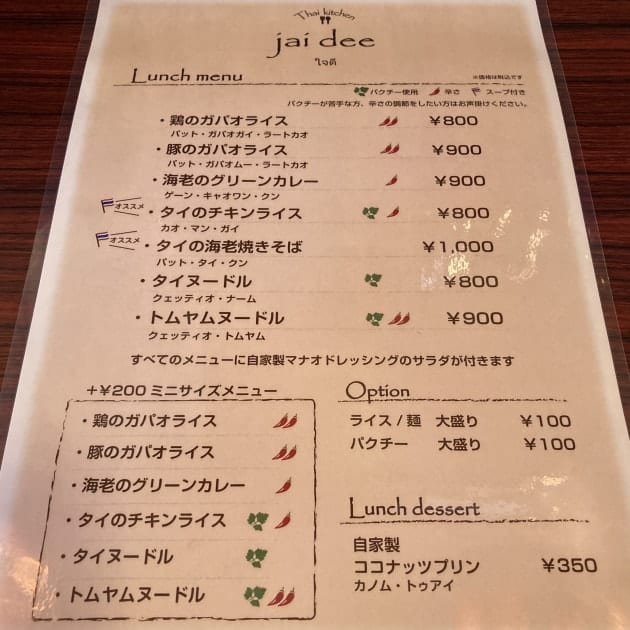 Thai kitchen
jai dee
ใจดี
Lunch menu
※価格は税込です
パクチー使用 辛さ スープ付き
パクチーが苦手な方、辛さの調節をしたい方はお声掛けください。
・鶏のガパオライス ¥800
パット・ガパオガイ・ラートカオ
・豚のガパオライス ¥900
パット・ガパオムー・ラートカオ
・海老のグリーンカレー ¥900
ゲーン・キャオワン・クン
オススメ ・タイのチキンライス ¥800
カオ・マン・ガイ
オススメ ・タイの海老焼きそば ¥1,000
パット・タイ・クン
・タイヌードル ¥800
クェッティオ・ナーム
・トムヤムヌードル ¥900
クェッティオ・トムヤム
すべてのメニューに自家製マナオドレッシングのサラダが付きます
+¥200 ミニサイズメニュー
・鶏のガパオライス
・豚のガパオライス
・海老のグリーンカレー
・タイのチキンライス
・タイヌードル
・トムヤムヌードル
Option
ライス / 麺 大盛り ¥100
パクチー 大盛り ¥100
Lunch dessert
自家製
ココナッツプリン ¥350
カノム・トゥアイ